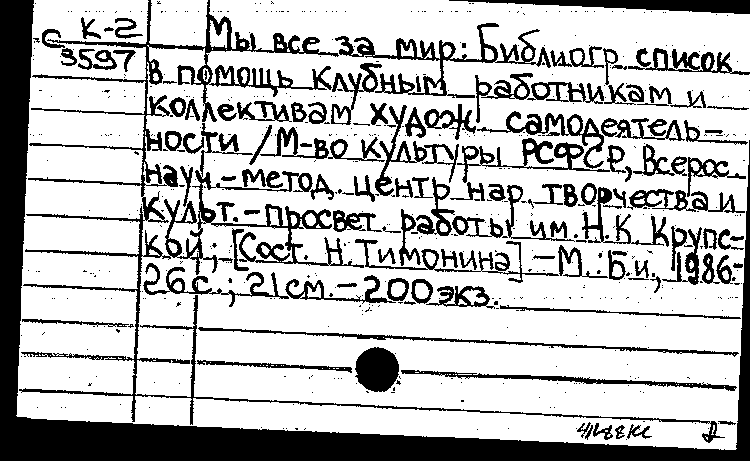 с К-2
3597
Мы все за мир: Библиогр. список
в помощь клубным работникам и
коллективам худож. самодеятель-
ности / М-во культуры РСФСР, Всерос.
науч.-метод. центр нар. творчества и
культ.-просвет. работы им. Н.К. Крупс-
кой; [Сост. Н. Тимонина] - М.: Б.и., 1986-
26 с.; 21 см. - 200 экз.